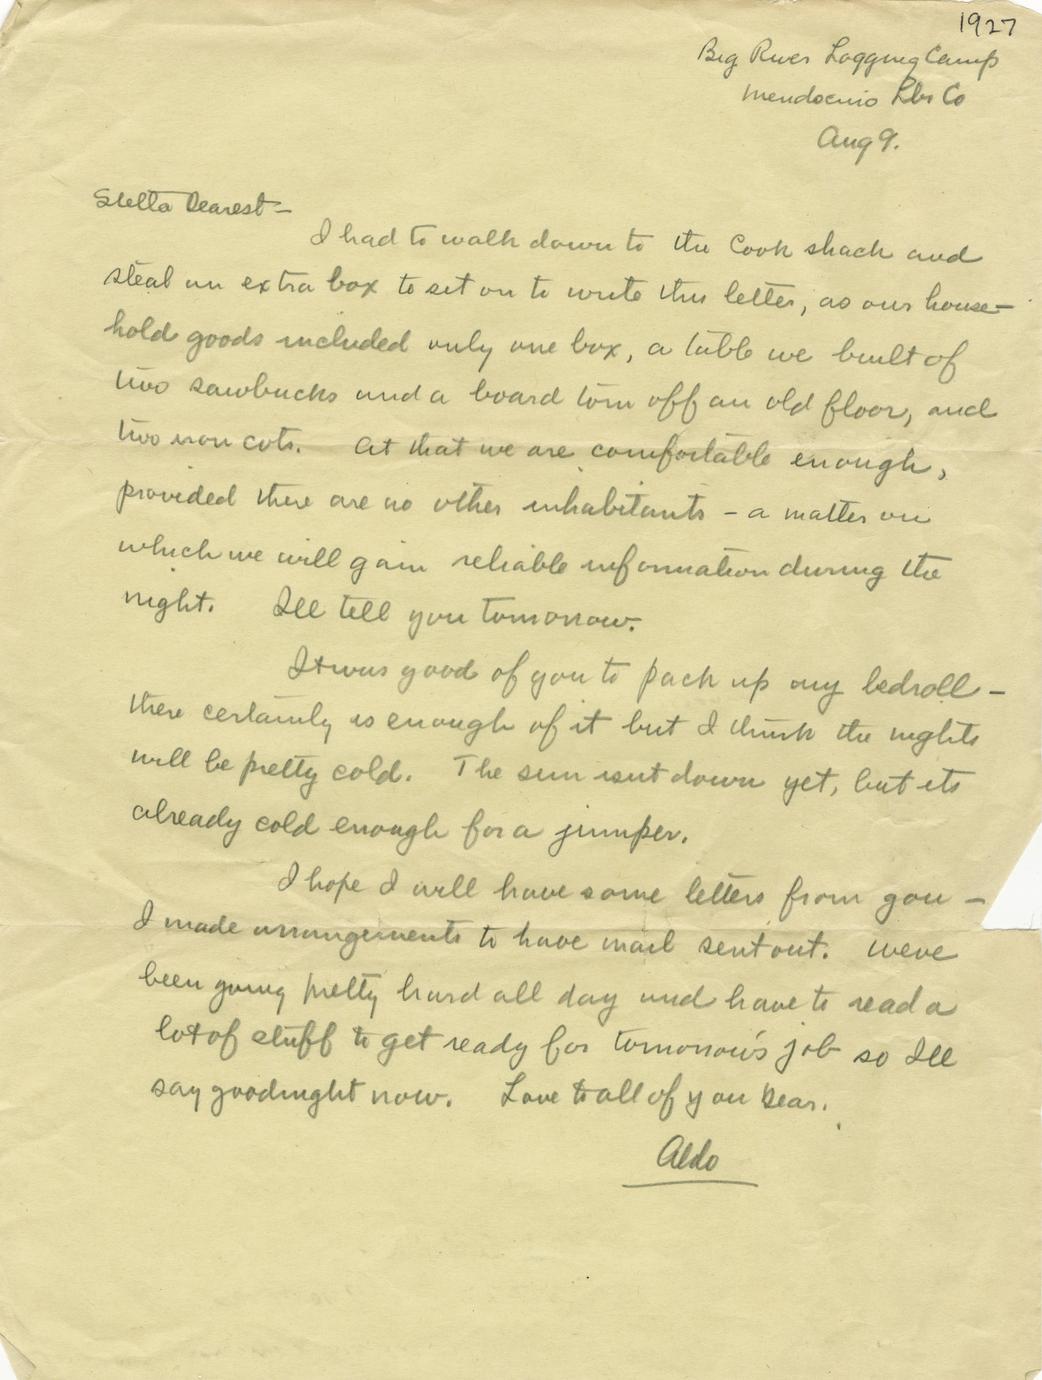 1927
Big River Logging Camp
Mendocino Lbr Co
Aug 9.
Stella Dearest -
I had to walk down to the Cook shack and
steal an extra box to set on to write this letter, as our house-
hold goods included only one box, a table we built of
two sawbucks and a board torn off an old floor, and
two iron cots. At that we are comfortable enough,
provided there are no other inhabitants - a matter on
which we will gain reliable information during the
night. Ill tell you tomorrow.
It was good of you to pack up my bedroll -
there certainly is enough of it but I think the nights
will be pretty cold. The sun isnt down yet, but its
already cold enough for a jumper.
I hope I will have some letters from you -
I made arrangements to have mail sent out. Weve
been going pretty hard all day and have to read a
lot of stuff to get ready for tomorrow's job so Ill
say goodnight now. Love to all of you Dear.
Aldo